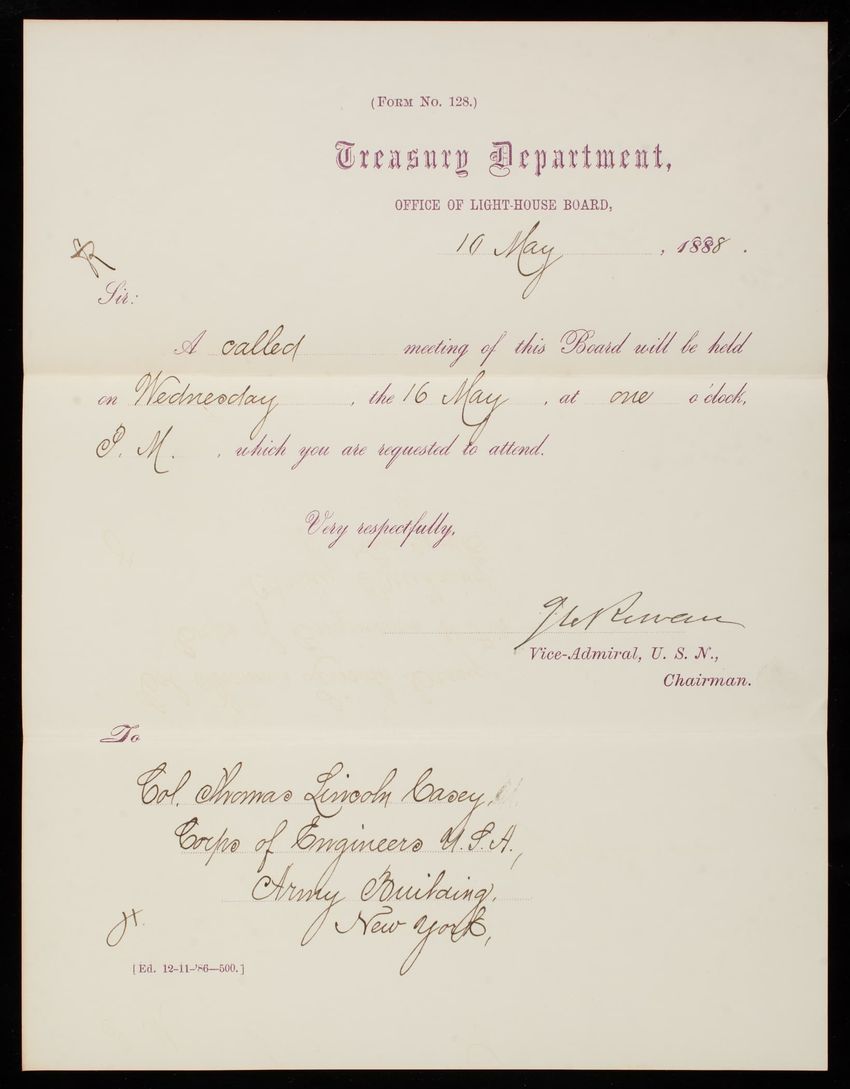 (FORM No. 128.)
Treasury Department,
OFFICE OF LIGHT-HOUSE BOARD,
10 May, 1888.
Sir:
A called meeting of this Board will be held
on Wednesday, the 16 May, at one o'clock,
P. M., which you are requested to attend.
Very respectfully,
Rowan
Vice-Admiral, U. S. N.,
Chairman.
To
Col. Thomas Lincoln Casey,
Corps of Engineers U.S.A.,
Army Building,
New York,
[Ed. 12-11-'86—500.]